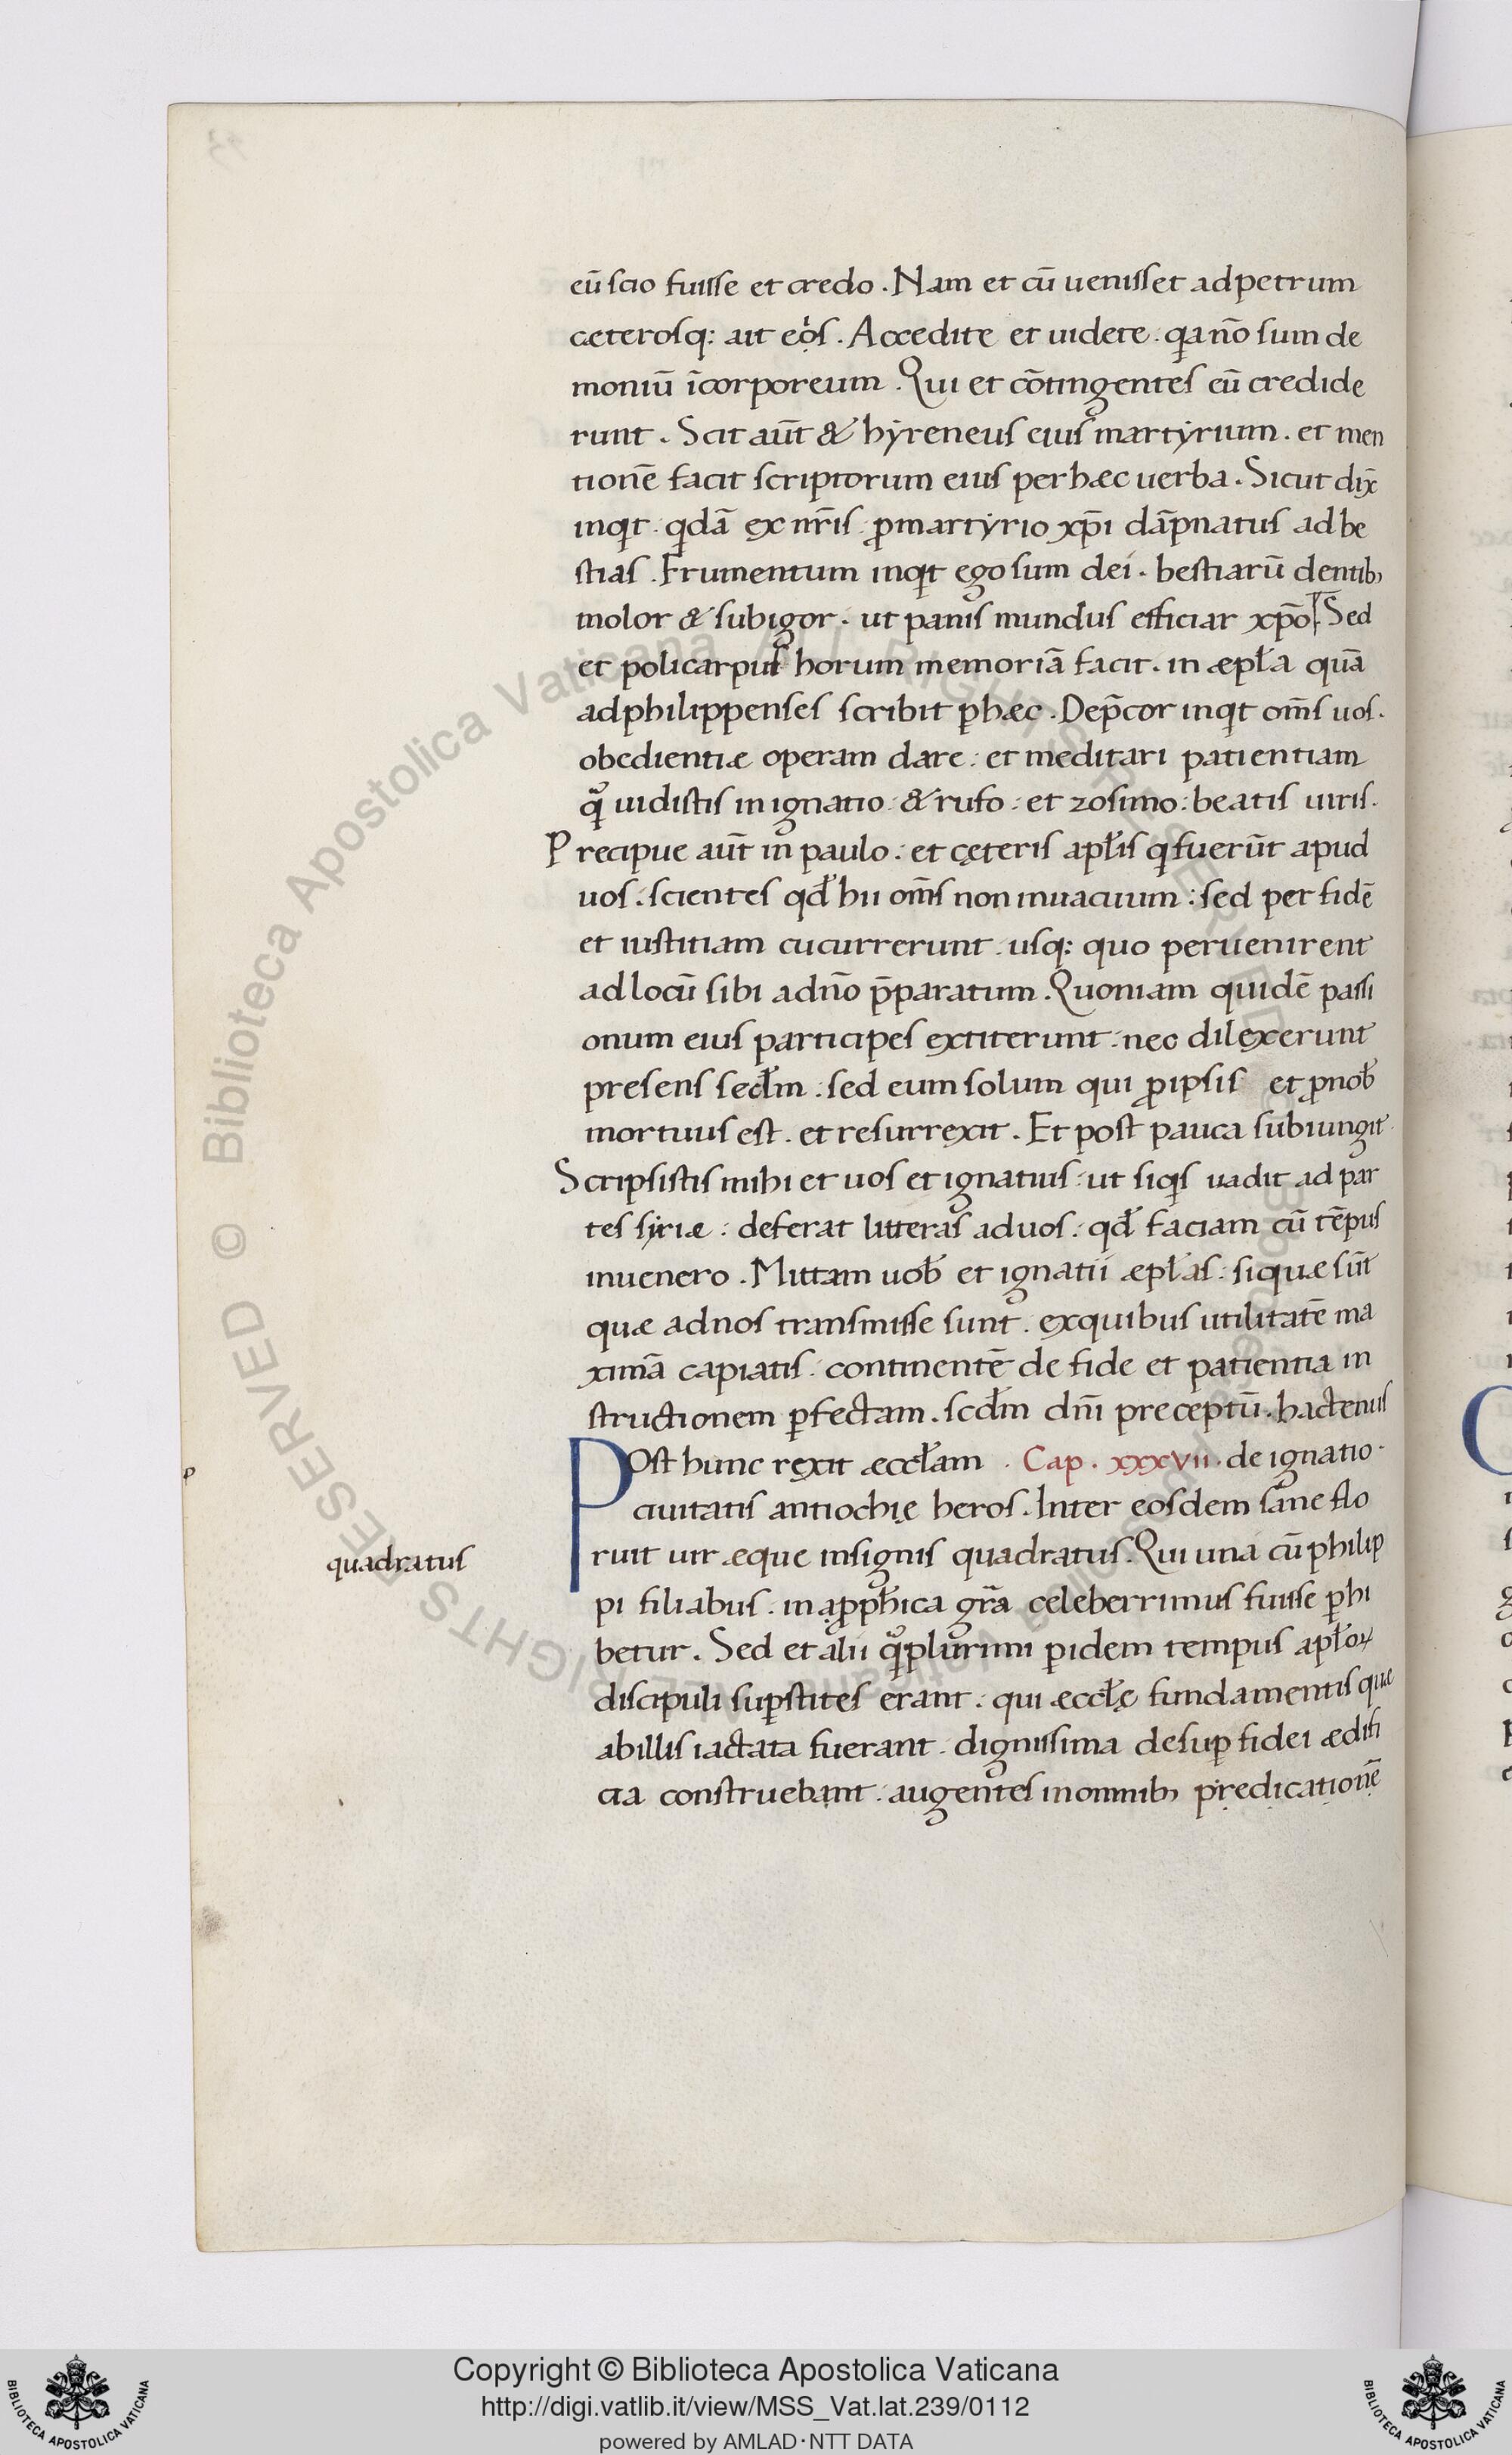 eū scio fuisse et credo . Nam et cū uenisset ad petrum
ceterosq: ait eos . Accedite et uidete . qa nō sum de
moniū īcorporeum . Qui et cōtingentes eū credide
runt . Scit aūt & hẏreneus eius martẏrium . et men
tionē facit scriptorum eius per hæc uerba . Sicut dix̄
inqit . qdā ex nr̄is . ꝓ martẏrio xp̄i dāpnatus ad be
stias . Frumentum inqit ego sum dei . bestiarū dentib;
molor & subigor . ut panis mundus efficiar xp̄o Sed
et policarpus horum memoriā facit . in æpl̄a quā
ad philippenses scribit ꝑ hæc . Dep̄cor inqit om̄s uos .
obedientiæ operam dare : et meditari patientiam
qͣ uidistis in ignatio . & rufo . et zosimo : beatis uiris .
Precipue aūt in paulo . et cęteris apl̄is q fuerūt apud
uos . scientes qd̄ hii om̄s non in uacuum : sed per fidē
et iustitiam cucurrerunt . usq: quo peruenirent
ad locū sibi a dn̄o p̄paratum . Quoniam quidē passi
onum eius participes extiterunt . nec dilexerunt
presens secl̄m . sed eum solum qui ꝓ ipsis et ꝓ nob̄
mortuus est . et resurrexit . Et post pauca subiungit .
Scripsistis mihi et uos et ignatius : ut siqis uadit ad par
tes sẏriæ : deferat litteras ad uos . qd̄ faciam cū tēpus
inuenero . Mittam uob̄ et ignatii æpl̄as . siquæ sūt
quæ ad nos transmisse sunt . ex quibus utilitatē ma
ximā capiatis . continentē de fide et patientia in
structionem ꝑfectam . scd̄m dn̄i preceptū . hactenus
Post hunc rexit æccl̄am . Cap . xxxvii . de ignatio .
ciuitatis antiochię heros . Inter eosdem sane flo
quadratus
ruit uir æque insignis quadratus . Qui una cū philip
pi filiabus . in a ꝓph̄ica gr̄a celeberrimus fuisse ꝑhi
betur . Sed et alii qͣplurimi ꝑ idem tempus apl̄oꝝ
discipuli suꝑstites erant . qui æccl̄ę fundamentis que
ab illis iactata fuerant . dignissima desuꝑ fidei ædifi
cia construebant . augentes in omnib; predicationē
Copyright © Biblioteca Apostolica Vaticana
http://digi.vatlib.it/view/MSS_Vat.lat.239/0112
powered by AMLAD·NTT DATA
© Biblioteca Apostolica Vaticana
BIBLIOTECA APOSTOLICA VATICANA
BIBLIOTECA APOSTOLICA VATICANA